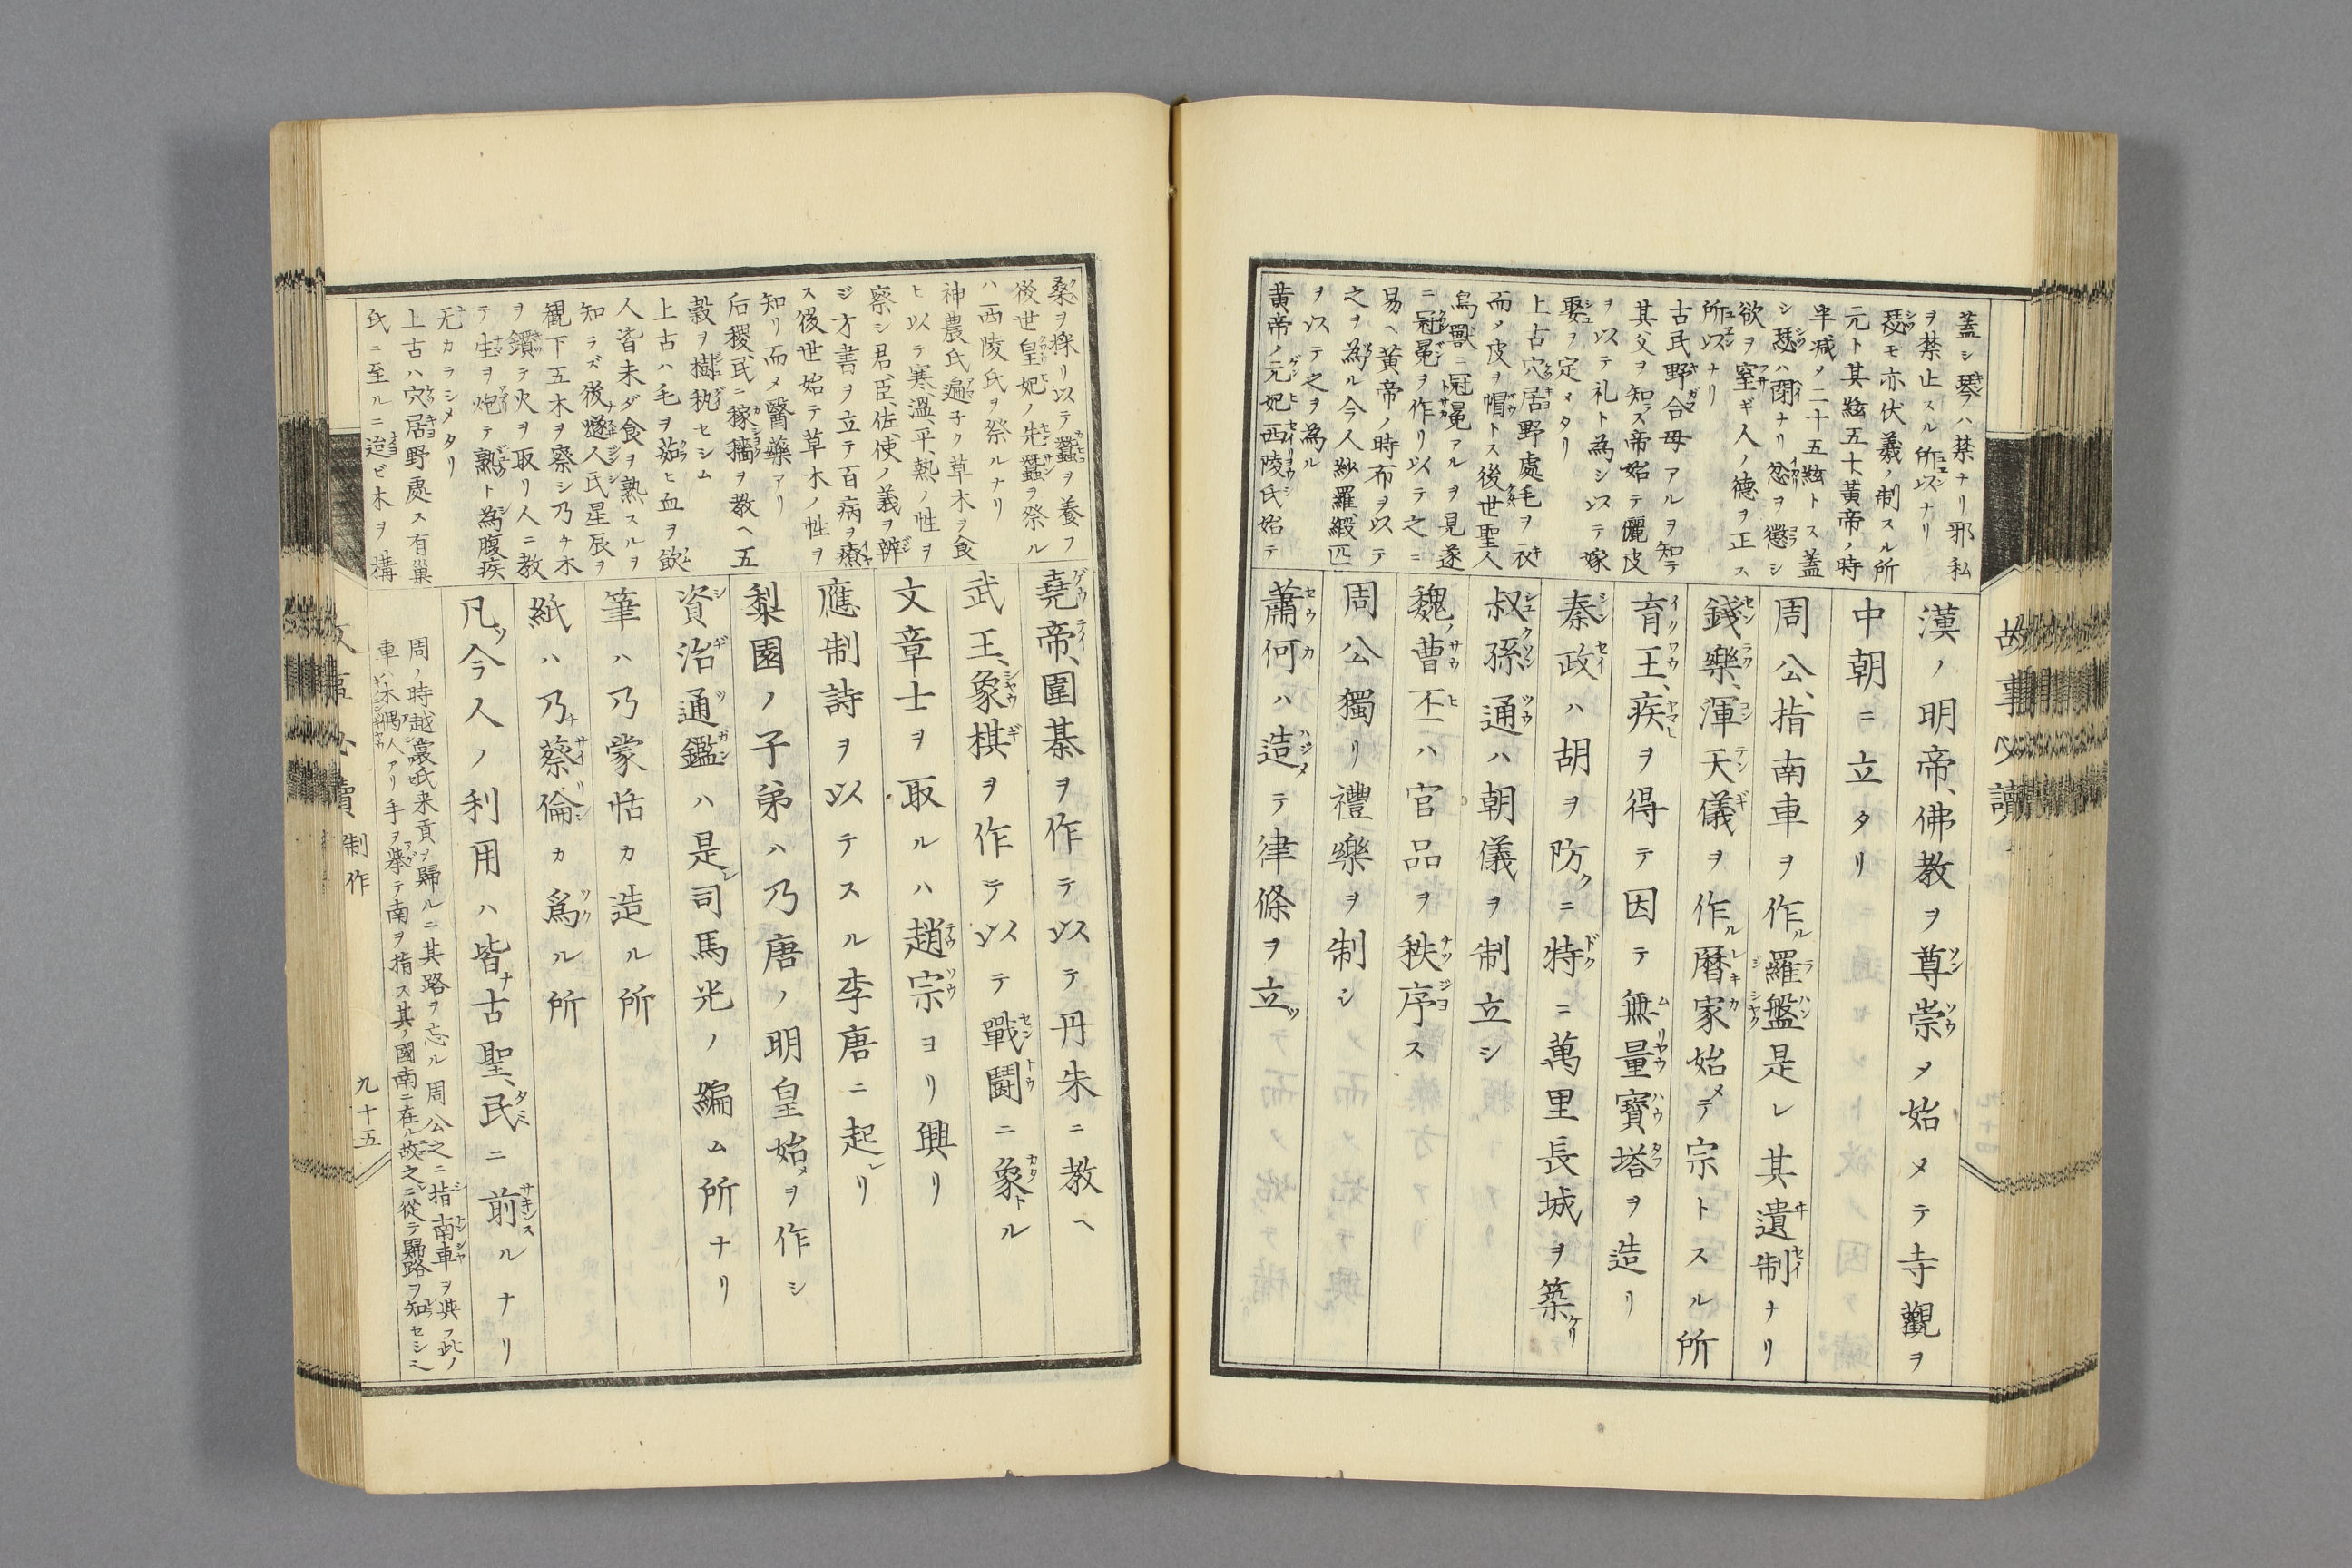 故事必讀
蓋シ琴ハ禁ナリ邪私
ヲ禁止スル所以ナリ
瑟モ亦伏義ノ制スル所
元ト其絃五十黃帝ノ時
半減メ二十五絃トス蓋
シ瑟ハ閉ナリ忿ヲ懲シ
欲ヲ窒ギ人ノ德ヲ正ス
所以ナリ
古民野合母アルヲ知テ
其父ヲ知ラズ帝始テ儷皮
ヲ以テ礼ト為シ以テ嫁
娶ヲ定メタリ
上古穴居野處毛ヲ衣
而メ皮ヲ帽トス後世聖人
鳥獸ニ冠冕アルヲ見遂
ニ冠冕ヲ作リ以テ之ニ
易ヘ黃帝ノ時布ヲ以テ
之ヲ為ル今人紗羅緞匹
ヲ以テ之ヲ為ル
黃帝ノ元妃西陵氏始テ
漢ノ明帝、佛教ヲ尊崇メ始メテ寺觀ヲ
中朝ニ立タリ
周公、指南車ヲ作ル羅盤是レ其遺制ナリ
錢樂、渾天儀ヲ作ル曆家始メテ宗トスル所
育王、疾ヲ得テ因テ無量寶塔ヲ造リ
秦政ハ胡ヲ防クニ特ニ萬里長城ヲ築ケリ
叔孫通ハ朝儀ヲ制立シ
魏ノ曹丕ハ官品ヲ秩序ス
周公獨リ禮樂ヲ制シ
蕭何ハ造テ律條ヲ立ツ
桑ヲ採リ以テ蠶ヲ養フ
後世皇妃ノ先蠶ヲ祭ル
ハ西陵氏ヲ祭ルナリ
神農氏遍子ク草木ヲ食
ヒ以テ寒、溫、平、熱ノ性ヲ
察シ君、臣、佐、使ノ義ヲ辨
ジ方書ヲ立テ百病ヲ療
ス後世始テ草木ノ性ヲ
知リ而メ醫藥アリ
后稷、民ニ稼穡ヲ教ヘ五
穀ヲ樹ヱ執セシム
上古ハ毛ヲ茹ヒ血ヲ飲
人皆未ダ食ヲ熟スルヲ
知ラズ後燧人氏星辰ヲ
観下五木ヲ察シ乃チ木
ヲ鑽テ火ヲ取リ人ニ教
テ生ヲ炮テ熟ト為腹疾
无カラシメタリ
上古ハ穴居野處ス有巢
氏ニ至ルニ迨ビ木ヲ構
堯帝、圍棊ヲ作テ以テ丹朱ニ教ヘ
武王、象棋ヲ作テ以テ戰鬪ニ象トル
文章士ヲ取ルハ趙宗ヨリ興リ
應制詩ヲ以テスル李唐ニ起レリ
梨園ノ子弟ハ乃唐ノ明皇始メヲ作シ
資治通鑑ハ是レ司馬光ノ編ム所ナリ
筆ハ乃蒙恬カ造ル所
紙ハ乃蔡倫カ爲ル所
凡ソ今人ノ利用ハ皆ナ古聖、民ニ前ルナリ
周ノ時越裳氏来貢ヲ歸ルニ其路ヲ忘ル周公之ニ指南車ヲ與フ此ノ
車ハ木偶人アリ手ヲ擧テ南ヲ指ス其ノ國南ニ在ル故之ニ從テ歸路ヲ知セシム
制作
九十五